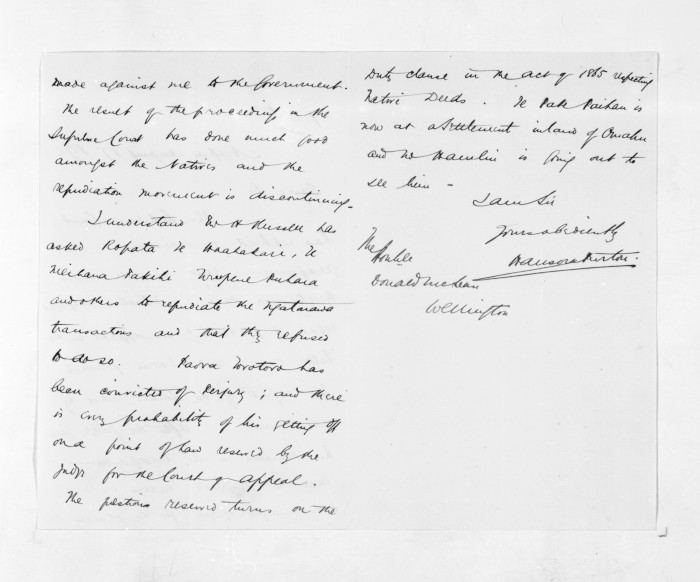 made against me to the Government.
The result of the proceedings in the
Supreme Court has done much good
amongst the Natives and the
repudiation movement is discontinuing.
I understand Mr H Russell has
asked Ropata Te
Meihana Takihi
and others to repudiate the Ngatarawa
transactions and that they refused
to do so. Paora Torotoro has
been convicted of Perjury; and there
is every probability of his getting off
on a point of Law reserved by the
Judge for the Court of Appeal.
The question reserved turns on the
Duty clause in the Act of 1865 respecting
Native Deeds. Te
now at a Settlement inland of Omahu
and Mr Hamlin is going out to
see him -
I am Sir
Yours obediently
The Honble
Hanson Turton.
Donald McLean
Wellington